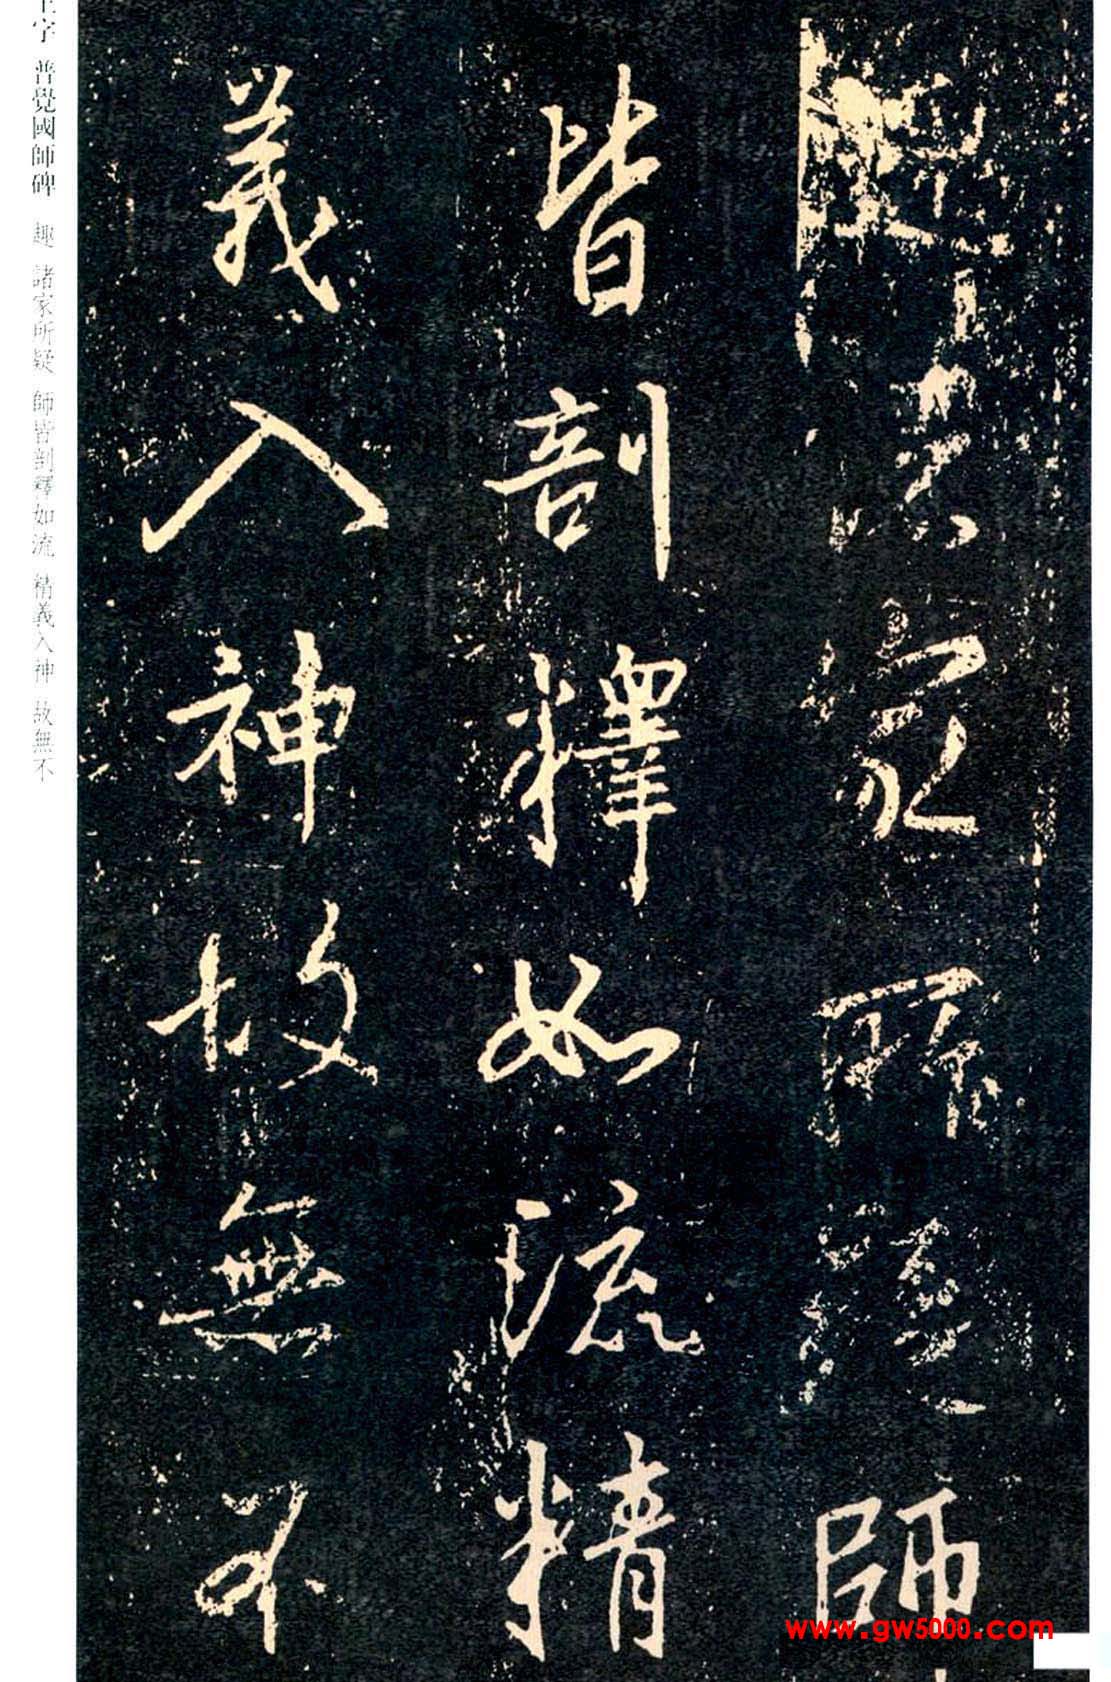 趣諸家所疑師
皆剖釋如流精
義入神故無不
王字 普覺國師碑 趣 諸家所疑 師皆剖釋如流 精義入神 故無不
www.gw5000.com